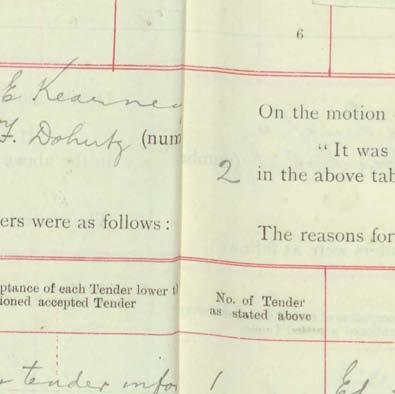 6
E Kearney
On the motion
F. Doherty (num
"It was
2 in the above tab
ers were as follows:
The reasons for
ptance of each Tender lower t
tioned accepted Tender
No. of Tender
as stated above
tender info
1
Ed